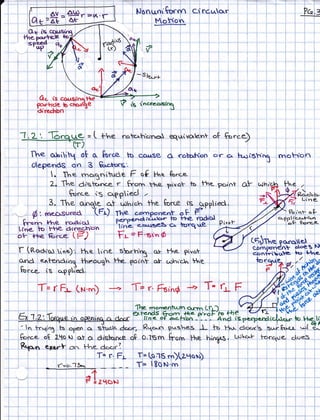 Nonuniform Circular
Motion
PG. 3
at = Δv/Δt = Δω/Δt r = α·r
at is causing
the particle to
speed
up
radius
(r)
start
ac is causing the
particle to change
direction
v is increasing
7.2: Torque = (the rotational equivalent of force)
(τ)
The ability of a force to cause a rotation or a twisting motion
depends on 3 factors:
1. The magnitude F of the force.
2. The distance r from the pivot to the point at which the
force is applied.
3. The angle at which the force is applied.
Radial
Line
Point of
application
of force
Pivot
ϕ: measured
from the radial
line to the direction
of the force (F)
(F⊥) The component of F
perpendicular to the radial
line causes a torque
F⊥ = F·sinϕ
r (Radial line): the line starting at the pivot
and extending through the point at which the
force is applied.
(F∥) The parallel
component does
contribute to the
torque
τ = r F⊥ (N·m) → τ = r·F sinϕ → τ = r⊥ F
The momentum arm (r⊥)
extends from the pivot to the
line of action. And is perpendicular to the
Ex 7.2: Torque in opening a door
- In trying to open a stuck door, Ryan pushes ⊥ to the door's surface w/ a
force of 240 N at a distance of 0.75m from the hinges. What torque does
Ryan exert on the door?
τ = r·F⊥ τ = (0.75 m)(240N)
r = 0.75m
τ = 180 N·m
F 240N